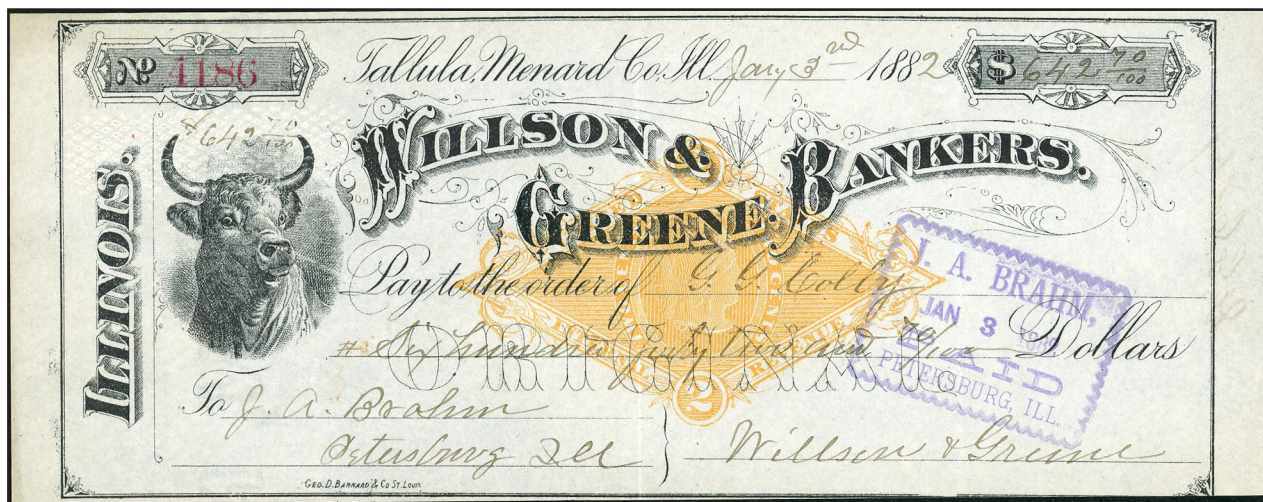 No 4186
Tallula, Menard Co. Ill. Jany 3rd 1882
$642 70/100
$642 70/100
ILLINOIS.
WILLSON &
GREENE. BANKERS.
Pay to the order of G. G. Colby
# Six hundred forty two and 70/100 Dollars
J. A. BRAHM,
JAN 3
PAID
PETERSBURG, ILL.
REVENUE
2
To J. A. Brahm
Petersburg Ill
Willson & Greene
GEO. D. BARNARD & CO ST. LOUIS